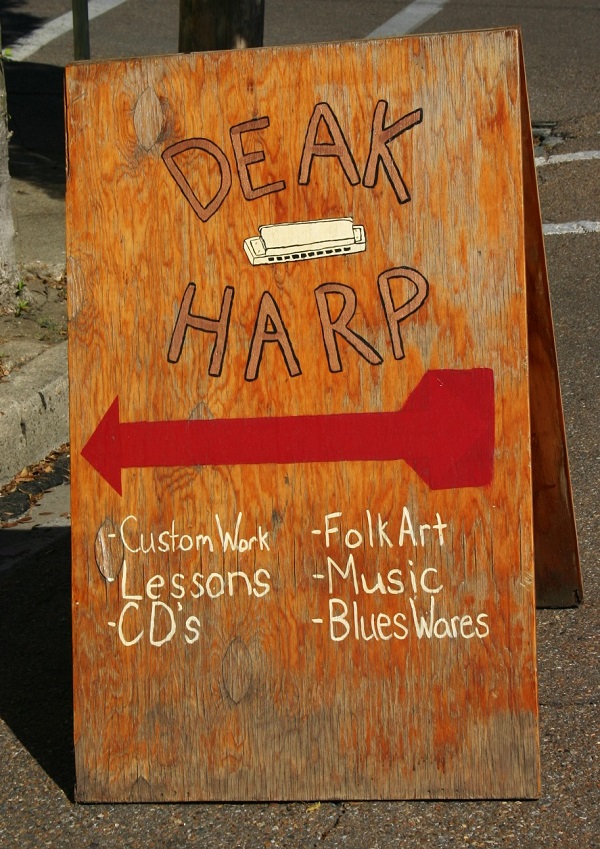 DEAK
HARP
-Custom Work
-Lessons
-CD's
-Folk Art
-Music
-Blues Wares